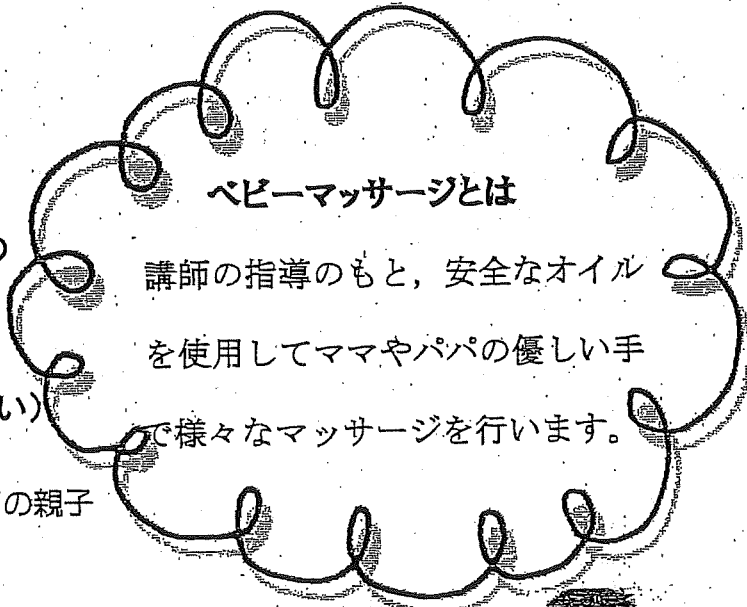 ベビーマッサージとは
講師の指導のもと，安全なオイル
を使用してママやパパの優しい手
で様々なマッサージを行います。
い）
の親子